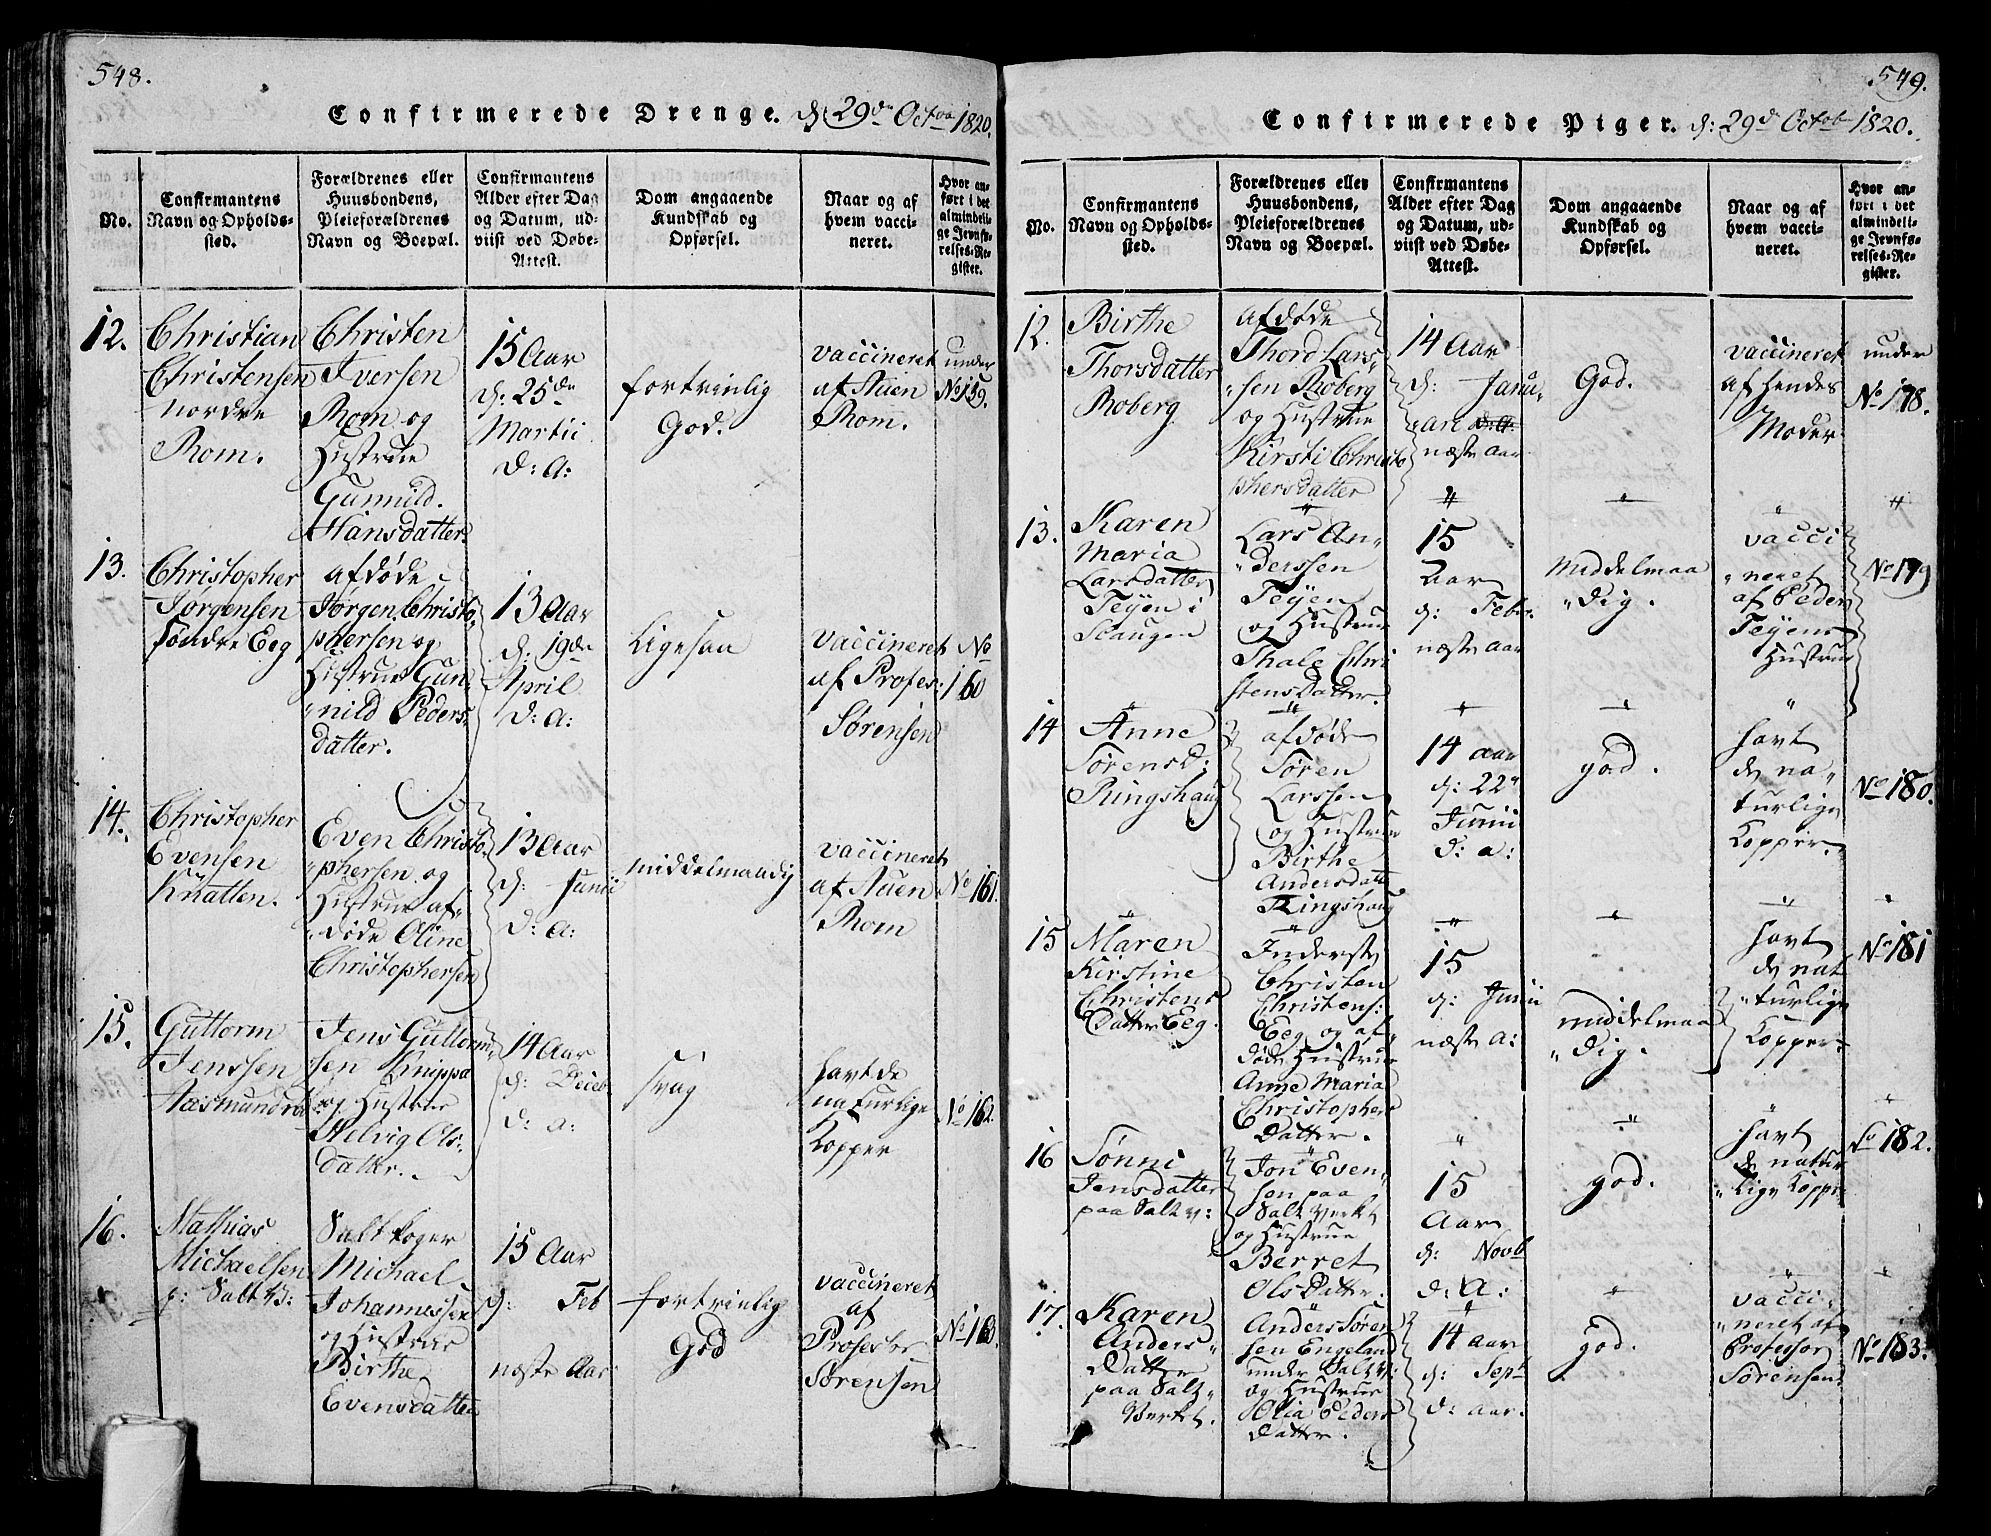 548.
Confirmerede Drenge. d: 29de Octbr 1820.
No.
Confirmantens
Navn og Opholds-
sted.
Forældrenes eller
Huusbondens,
Pleieforældrenes
Navn og Boepæl.
Confirmantens
Alder efter Dag
og Datum, ud-
viist ved Døbe-
Attest.
Dom angaaende
Kundskab og
Opførsel.
Naar og af
hvem vacci-
neret.
Hvor an-
ført i det
almindeli-
ge Jevnfø-
relses-Re-
gister.
12.
Christian
Christensen
nordre
Rom.
Christen
Iversen
Rom og
Hustrue
Gunnild
Hansdatter
15 Aar
d: 25de
Martii
d: A:
fortrinlig
God.
vaccineret
af Auen
Rom.
under
No 159.
13.
Christopher
Jørgensen
søndre Eeg
afdøde
Jørgen Christo-
phersen og
Hustrue Gun-
nild Peders-
datter.
13 Aar
d: 19de
April
d: A:
Ligesaa
vaccineret
af Profes:
Sørensen
No
160
14.
Christopher
Evensen
Knatten.
Even Christo-
phersen og
Hustrue af-
døde Oline
Christophersen
13 Aar
d: Junii
d: A:
middelmaadig
vaccineret
af Auen
Rom
No 161.
15.
Guttorm
Jenssen
Aasmundrød
Jens Guttorm-
sen Knippa
og Hustrue
Helvig Ols:
datter.
14 Aar
d: Deceb
d: a:
svag
havt de
naturlige
Kopper
No 162.
16.
Mathias
Michaelsen
p: Salt V:
Saltkoger
Michael
Johannessen
og Hustrue
Birthe
Evensdatter
15 Aar
d: Feb
næste Aar
fortrinlig
God
vaccineret
af
Professer
Sørensen
No 163.
549.
Confirmerede Piger. d: 29de Octob 1820.
No.
Confirmantens
Navn og Opholds-
sted.
Forældrenes eller
Huusbondens,
Pleieforældrenes
Navn og Boepæl.
Confirmantens
Alder efter Dag
og Datum, ud-
viist ved Døbe-
Attest.
Dom angaaende
Kundskab og
Opførsel.
Naar og af
hvem vacci-
neret.
Hvor an-
ført i det
almindeli-
ge Jevnfø-
relses-Re-
gister.
12.
Birthe
Thorsdatter
Roberg
afdøde
Thord Lars-
sen Roberg
og Hustrue
Kirsti Christo
phersdatter
14 Aar
d: Janu-
ari
næste aar
God.
vaccineret
af hendes
Moder
under
No 178.
13.
Karen
Maria
Larsdatter
Teyen i
Scaugen
Lars An-
derssen
Teyen
og Hustrue
Thale Chri
stens Datter.
15
Aar
d: Febr.
næste aar
Middelmaa
dig.
vacci
neret
af Peder
Teyens
Hustrue
No 179
14
Anne
Sørensd:
Ringshaug
afdøde
Søren
Larssen
og Hustrue
Birthe
Andersdatt
Ringshaug
14 aar
d: 22
Junii
d: a:
god.
havt
de na-
turlige
Kopper.
No 180.
15
Maren
Kirstine
Christens
Datter Eeg.
Inderste
Christen
Christens:
Eeg og af-
døde Hustrue
Anne Maria
Christophers
Datter.
15
d: Junii
næste a:
middelmaa
dig.
havt
de nat
turlige
Kopper.
No 181
16
Sønni
Jensdatter
paa Salt V:
Jon Even-
sen paa
Salt Verket
og Hustrue
Berret
Ols Datter.
15
Aar
d: Novb
d: A:
god.
havt
de natur
lige Kopper
No 182.
17.
Karen
Anders-
Datter
paa Salt-
Verket.
Anders Søren
sen Engeland
under Salt V:
og Hustrue
Olia Peders
Datter.
14 aar
d: Sept
d: aar.
god.
vacci-
neret af
Professor
Sørensen
No 183.